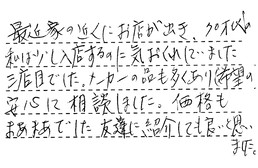 最近家の近くにお店が出き、30才代の
私は少し入店するのに気おくれしていました
三店目でした。メーカーの品も多くあり希望の
安心に相談しました。価格も
まあまあでした友達に紹介しても良いと思い
ます。